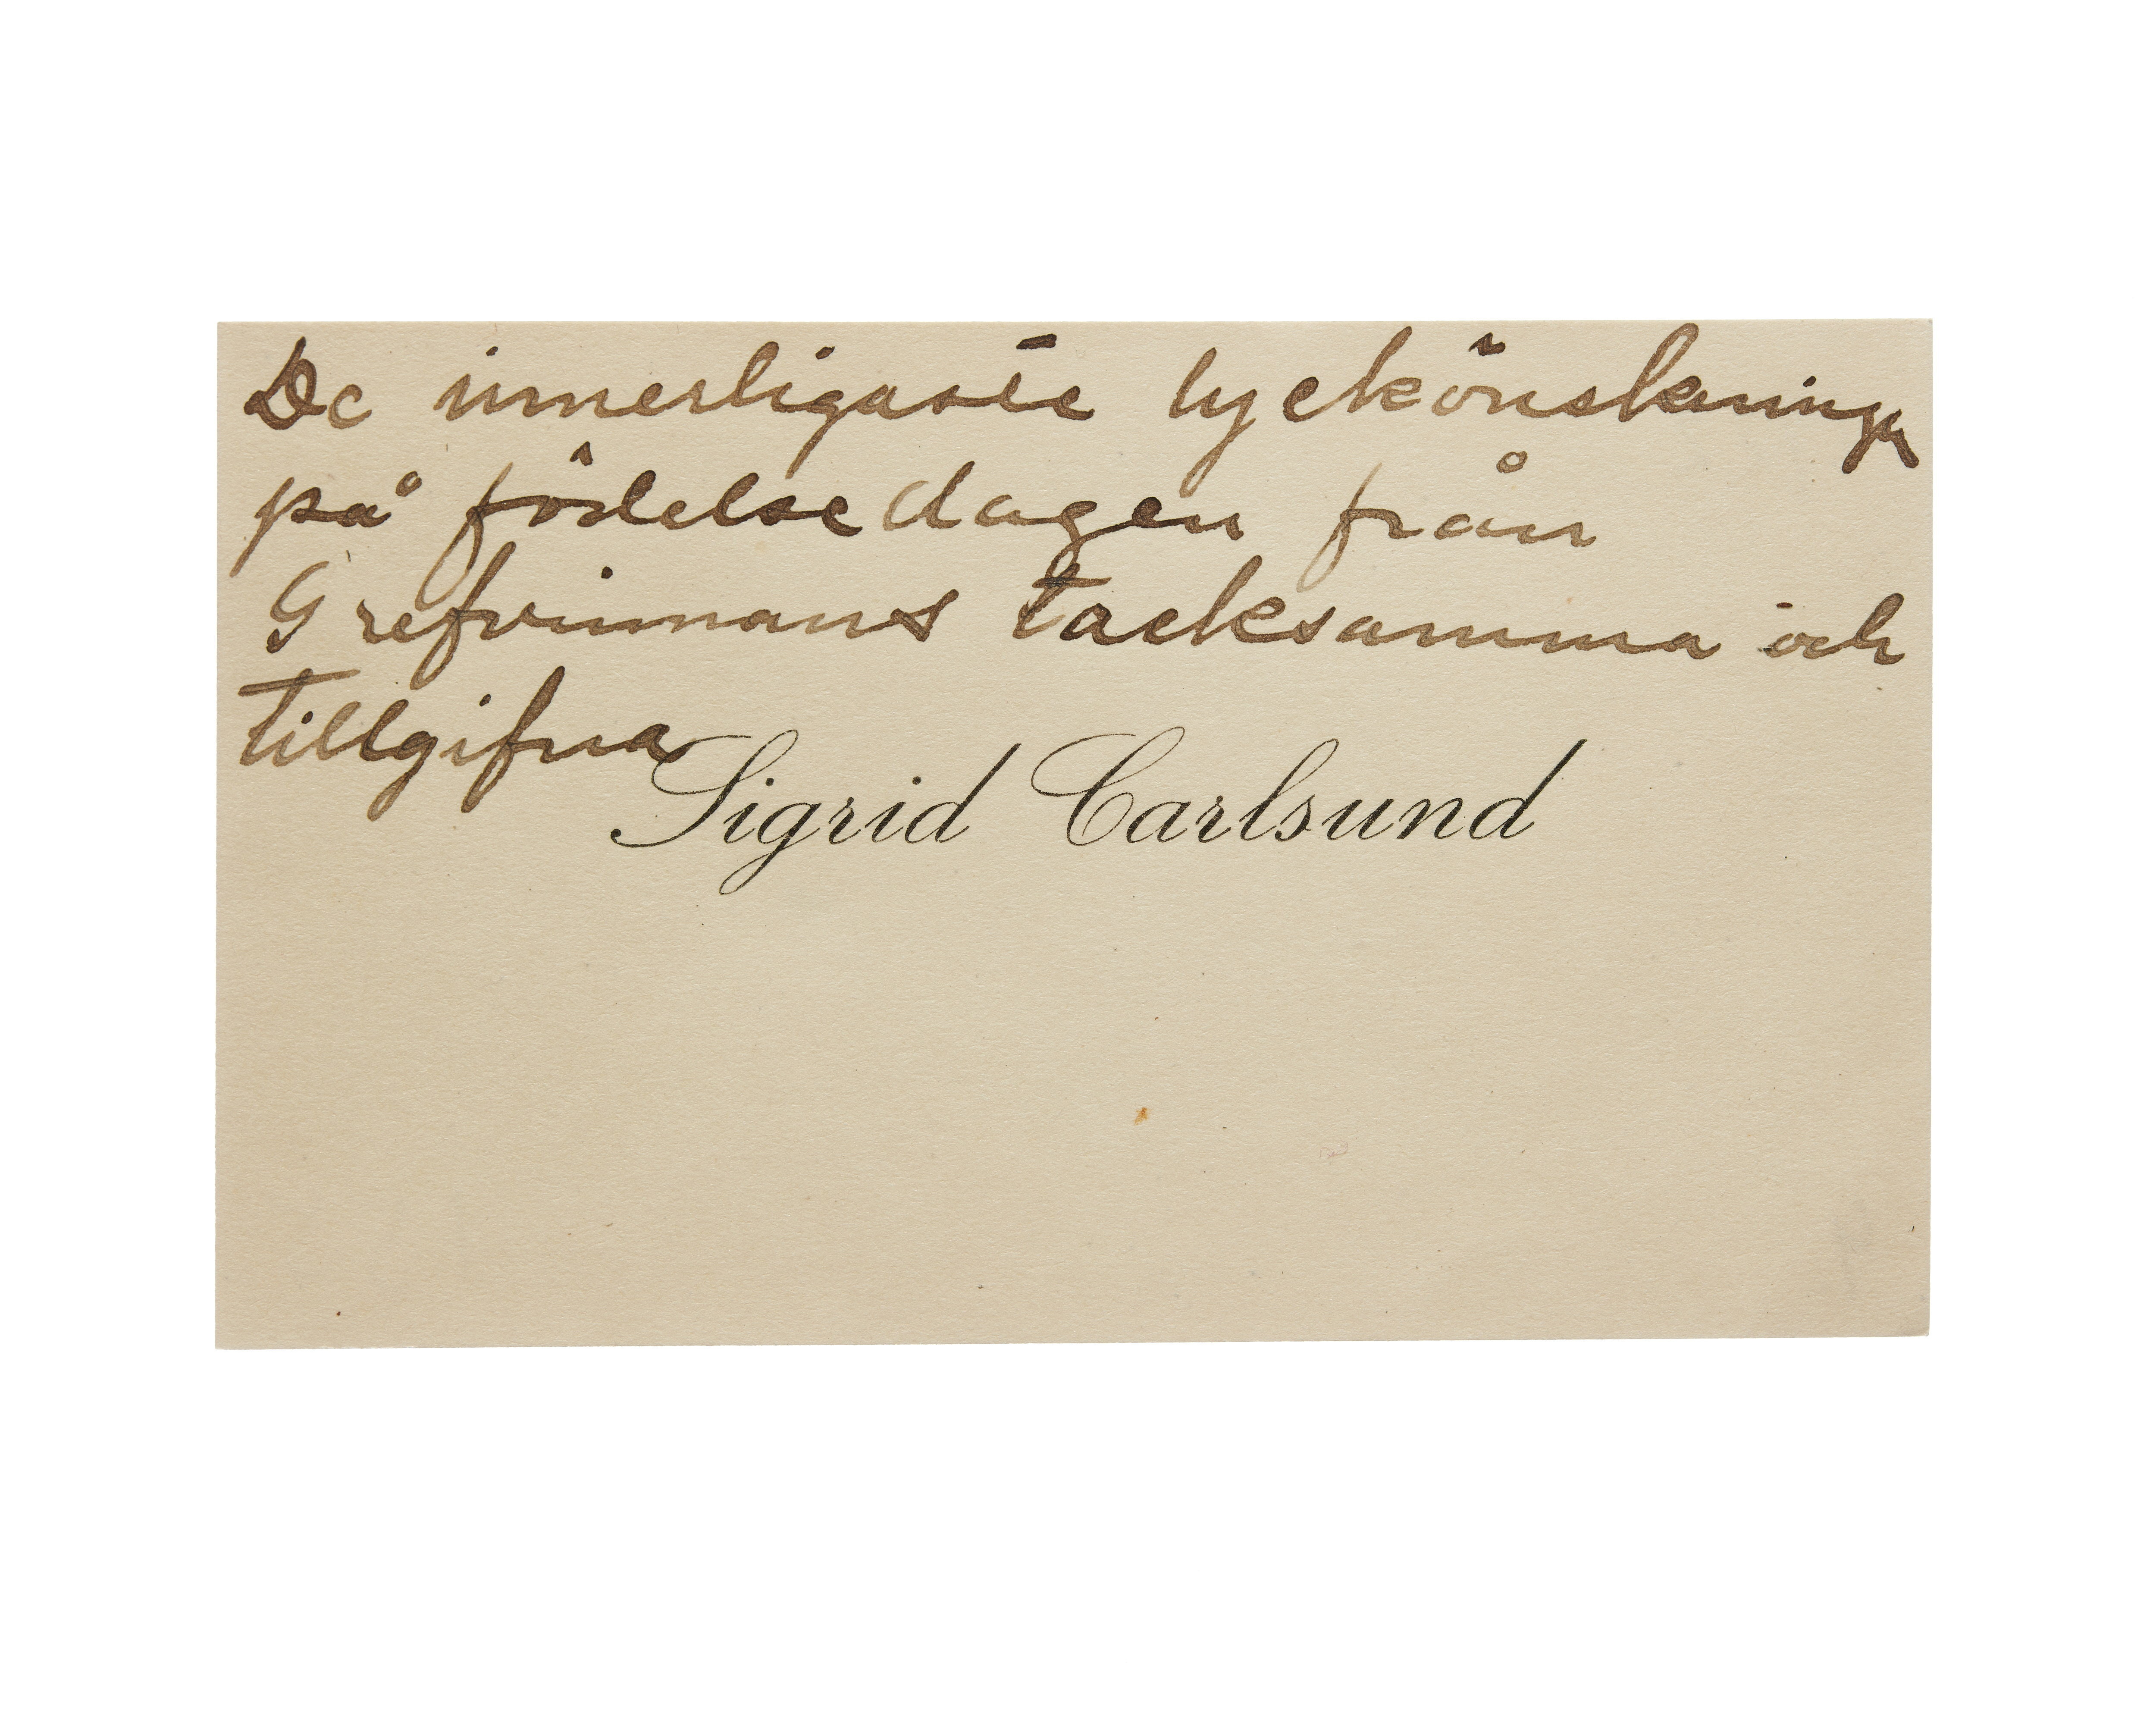 De innerligaste lyckönskningar
på födelsedagen från
Grefvinnans tacksamma och
tillgifna
Sigrid Carlsund